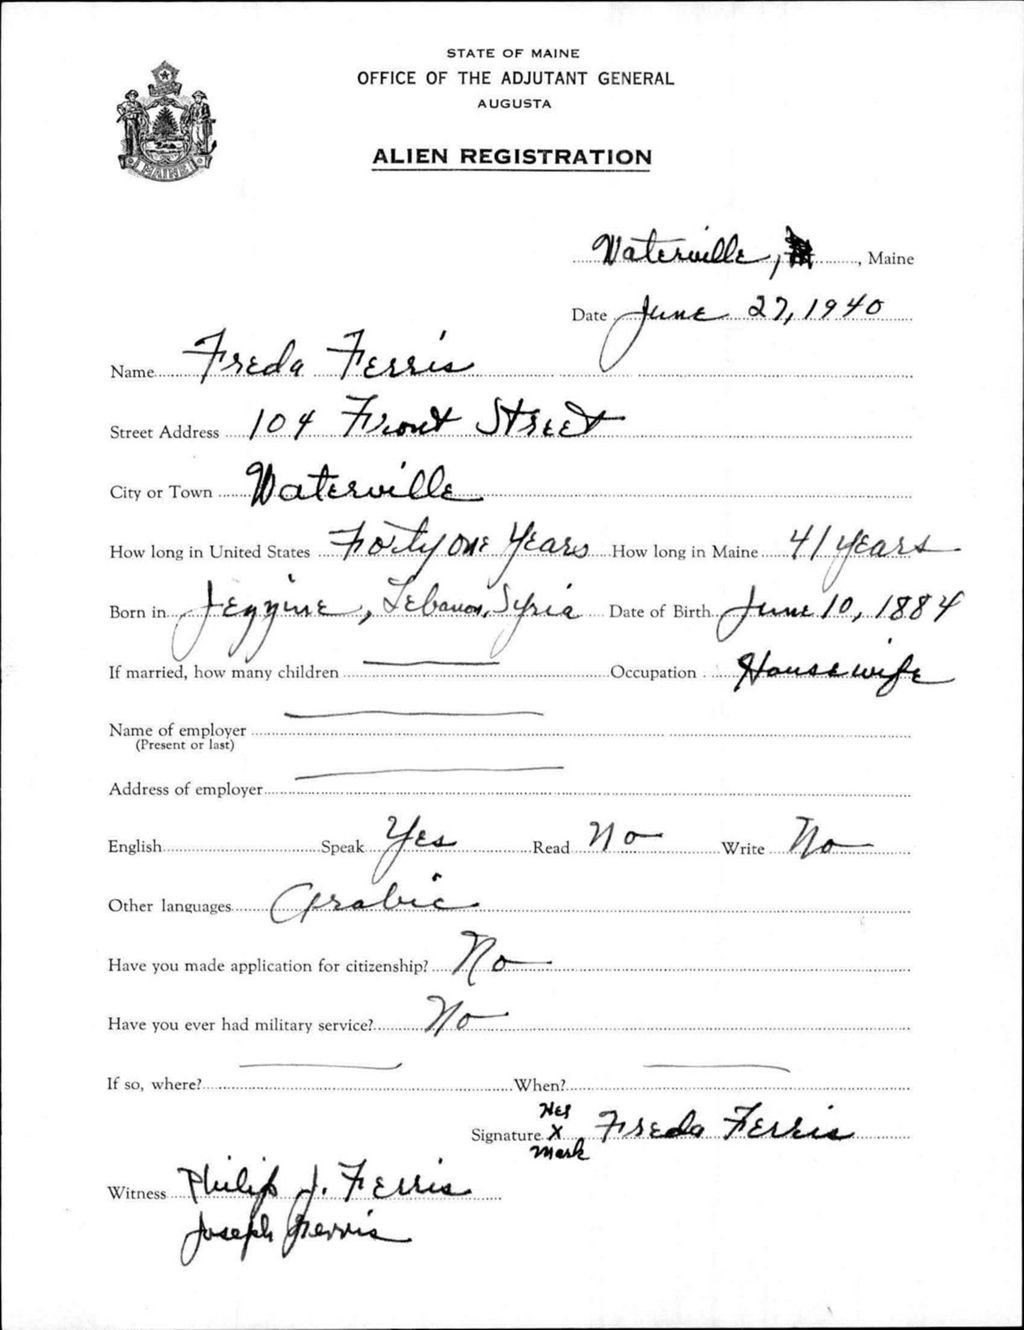 STATE OF MAINE
OFFICE OF THE ADJUTANT GENERAL
AUGUSTA
ALIEN REGISTRATION
MAINE
Waterville, , Maine
Date June 27, 1940
Name Freda Ferris
Street Address 104 Front Street
City or Town Waterville
How long in United States Forty one Years How long in Maine 41 years
Born in Jezzine, Lebanon, Syria Date of Birth June 10, 1884
If married, how many children Occupation Housewife
Name of employer
(Present or last)
Address of employer
English Speak Yes Read No Write No
Other languages Arabic
Have you made application for citizenship? No
Have you ever had military service? No
If so, where? When?
Her
Signature X Freda Ferris
Mark
Witness Philip J. Ferris
Joseph Ferris